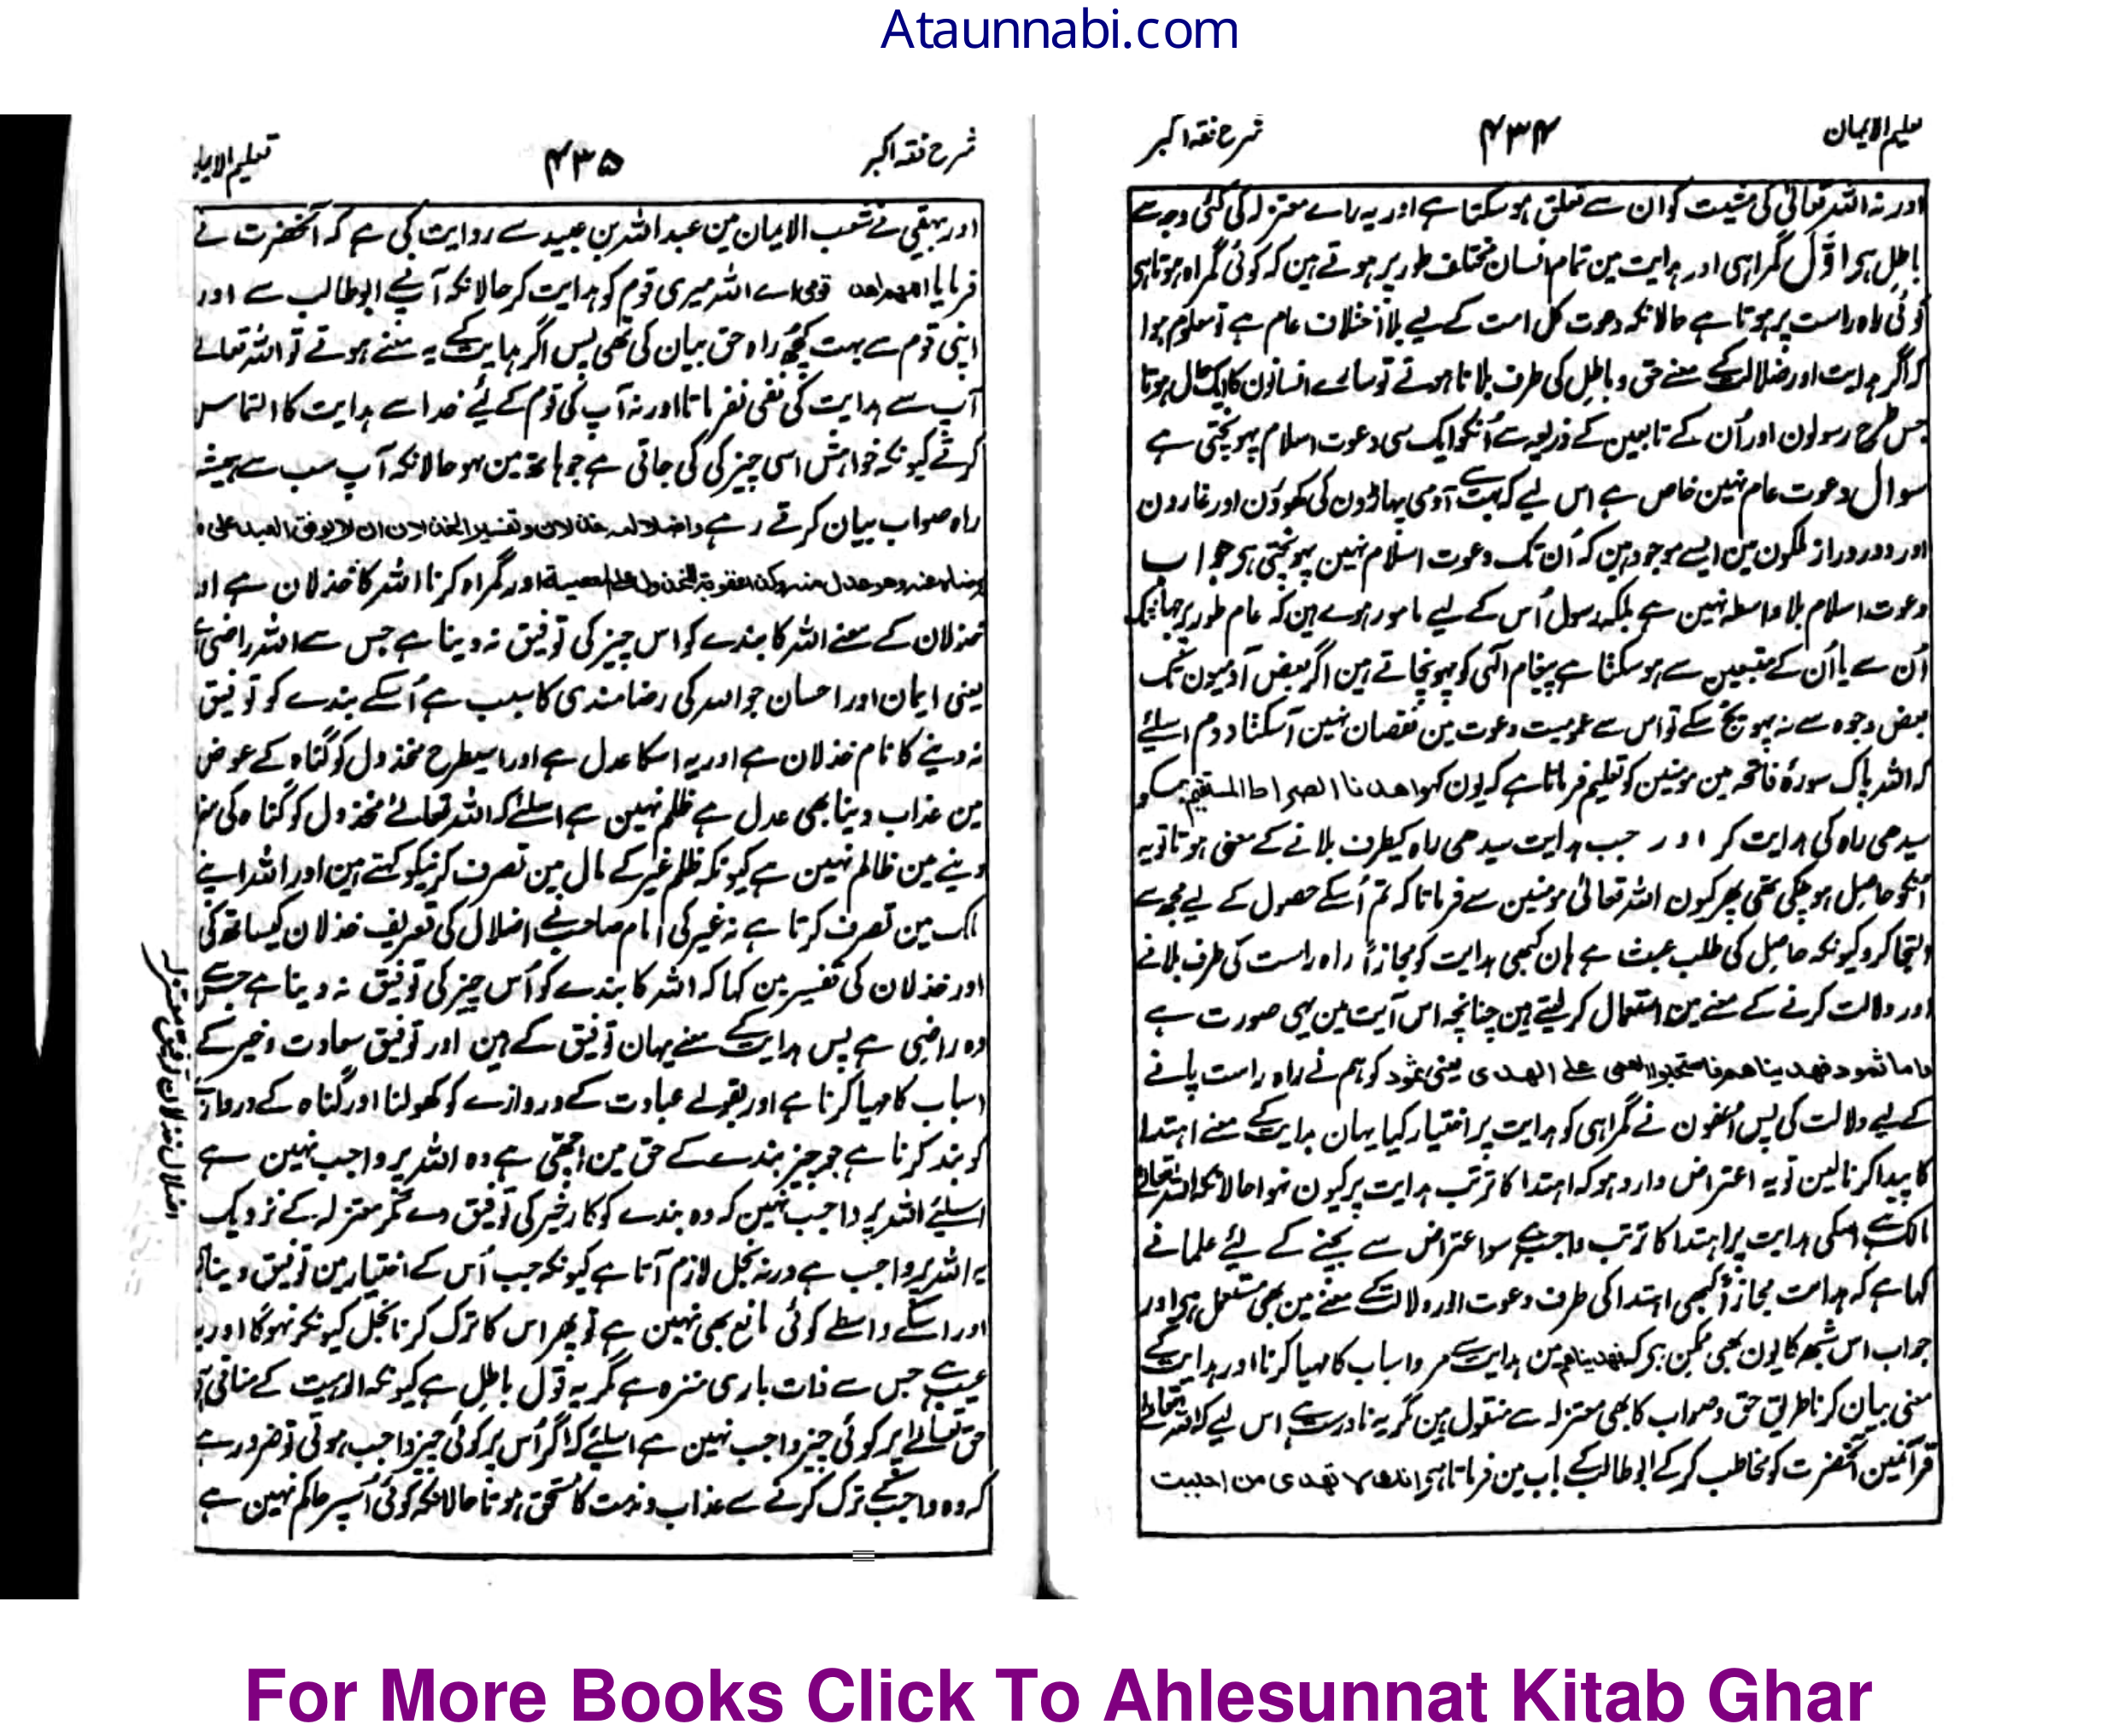 Ataunnabi.com
تعلیم الایمان
۴۳۴
شرح فقہ اکبر
اور نہ اللہ تعالیٰ کی مشیت کو ان سے تعلق ہو سکتا ہے اور یہ راے معتزلہ کی کئی وجہ سے
باطل ہی اوّل گمراہی اور ہدایت مین تمام انسان مختلف طور پر ہوتے ہین کہ کوئی گمراہ ہوتا ہی
کوئی راہ راست پر ہوتا ہے حالانکہ دعوت کل امت کے لیے بلا اختلاف عام ہے تو معلوم ہوا
کہ اگر ہدایت اور ضلالت کے معنے حق و باطل کی طرف بلانا ہوتے تو سارے انسانون کا ایک حال ہوتا
جس طرح رسولون اور اُن کے تابعین کے ذریعہ سے اُنکو ایک سی دعوت اسلام پہونچتی ہے
سوال دعوت عام نہین خاص ہے اس لیے کہ بہت سے آدمی پہاڑون کی کھوؤن اور غارون
اور دور دراز ملکون مین ایسے موجود ہین کہ اُن تک دعوت اسلام نہین پہونچتی ہی جواب
دعوت اسلام بلا واسطہ نہین ہے بلکہ رسول اُس کے لیے مامور ہوے ہین کہ عام طور پر جہانتک
اُن سے یا اُن کے متبعین سے ہو سکتا ہے پیغام الٰہی کو پہونچاتے ہین اگر بعض آدمیون تک
بعض وجوہ سے نہ پہونچ سکے تو اس سے عمومیت دعوت مین نقصان نہین آسکتا دوم اسلئے
کہ اللہ پاک سورۂ فاتحہ مین مومنین کو تعلیم فرماتا ہے کہ یون کہو اهدنا الصراط المستقیم ہمکو
سیدھی راہ کی ہدایت کر اور جب ہدایت سیدھی راہ کیطرف بلانے کے معنی ہوتا تو یہ
اُنکو حاصل ہو چکی تھی پھر کیون اللہ تعالیٰ مومنین سے فرماتا کہ تم اُسکے حصول کے لیے مجھ سے
التجا کرو کیونکہ حاصل کی طلب عبث ہے ہان کبھی ہدایت کو مجازاً راہ راست کی طرف بلانے
اور دلالت کرنے کے معنے مین استعمال کر لیتے ہین چنانچہ اس آیت مین یہی صورت ہے
واما ثمود فهديناهم فاستحبوا العمى على الهدى یعنی ثمود کو ہم نے راہ راست پانے
کے لیے دلالت کی پس اُنھون نے گمراہی کو ہدایت پر اختیار کیا یہان ہدایت کے معنے اہتدا
کا پیدا کرنا لین تو یہ اعتراض وارد ہو کہ اہتدا کا ترتب ہدایت پر کیون نہوا حالانکہ اللہ تعالےٰ
مالک ہے اسکی ہدایت پر اہتدا کا ترتب واجب ہے سو اعتراض سے بچنے کے لئے علما نے
کہا ہے کہ ہدایت مجازاً کبھی اہتدا کی طرف دعوت اور دلالت کے معنے مین بھی مستعمل ہی اور
جواب اس شبھ کا یون بھی ممکن ہی کہ فهديناهم مین ہدایت سے مراد اسباب کا مہیا کرنا اور ہدایت کے
معنی بیان کرنا طریق حق و صواب کا بھی معتزلہ سے منقول ہین مگر یہ نادرست ہے اس لیے کہ اللہ تعالےٰ
قرآنمین آنحضرت کو مخاطب کر کے ابوطالب کے باب مین فرماتا ہی انك لا تهدى من احببت
شرح فقہ اکبر
۴۳۵
تعلیم الایمان
اور بہقی نے شعب الایمان مین عبد اللہ بن عبید سے روایت کی ہے کہ آنحضرت نے
فرمایا اللهم اهد قومی اے اللہ میری قوم کو ہدایت کر حالانکہ آپ نے ابوطالب سے اور
اپنی قوم سے بہت کچھ راہ حق بیان کی تھی پس اگر ہدایت کے یہ معنے ہوتے تو اللہ تعالےٰ
آپ سے ہدایت کی نفی نفرماتا اور نہ آپ کی قوم کے لئے خدا سے ہدایت کا التماس
کرتے کیونکہ خواہش اسی چیز کی کی جاتی ہے جو ہاتھ مین نہو حالانکہ آپ سب سے ہمیشہ
راہ صواب بیان کرتے رہے واضلاله خذلان وتفسير الخذلان ان لا يوفق العبد على ما
يرضاه عنه وهو عدل منه وكذا عقوبة المخذول على المعصية اور گمراہ کرنا اللہ کا خذلان ہے اور
خذلان کے معنے اللہ کا بندے کو اس چیز کی توفیق نہ دینا ہے جس سے اللہ راضی ہے
یعنی ایمان اور احسان جو اللہ کی رضامندی کا سبب ہے اُسکے بندے کو توفیق
نہ دینے کا نام خذلان ہے اور یہ اسکا عدل ہے اور اسیطرح مخذول کو گناہ کے عوض
مین عذاب دینا بھی عدل ہے ظلم نہین ہے اسلئے کہ اللہ تعالےٰ مخذول کو گناہ کی سزا
دینے مین ظالم نہین ہے کیونکہ ظلم غیر کے مال مین تصرف کرنیکو کہتے ہین اور اللہ اپنے
ملک مین تصرف کرتا ہے نہ غیر کی امام صاحب نے اضلال کی تعریف خذلان کیساتھ کی
اور خذلان کی تفسیر مین کہا کہ اللہ کا بندے کو اُس چیز کی توفیق نہ دینا ہے جس سے
وہ راضی ہے پس ہدایت کے معنے یہان توفیق کے ہین اور توفیق سعادت و خیر کے
اسباب کا مہیا کرنا ہے اور بقولے عبادت کے دروازے کو کھولنا اور گناہ کے دروازے
کو بند کرنا ہے جو چیز بندے کے حق مین اچھی ہے وہ اللہ پر واجب نہین ہے
اسلئے اللہ پر واجب نہین کہ وہ بندے کو کار خیر کی توفیق دے مگر معتزلہ کے نزدیک
یہ اللہ پر واجب ہے ورنہ بخل لازم آتا ہے کیونکہ جب اُس کے اختیار مین توفیق دینا ہے
اور اسکے واسطے کوئی مانع بھی نہین ہے تو پھر اس کا ترک کرنا بخل کیونکر نہوگا اور یہ
عیب ہے جس سے ذات باری منزہ ہے مگر یہ قول باطل ہے کیونکہ الوہیت کے منافی ہے
حق تعالےٰ پر کوئی چیز واجب نہین ہے اسلئے کہ اگر اُس پر کوئی چیز واجب ہوتی تو ضرور ہے
کہ وہ واجب کے ترک کرنے سے عذاب و ندمت کا مستحق ہوتا حالانکہ کوئی اُسپر حاکم نہین ہے
For More Books Click To Ahlesunnat Kitab Ghar